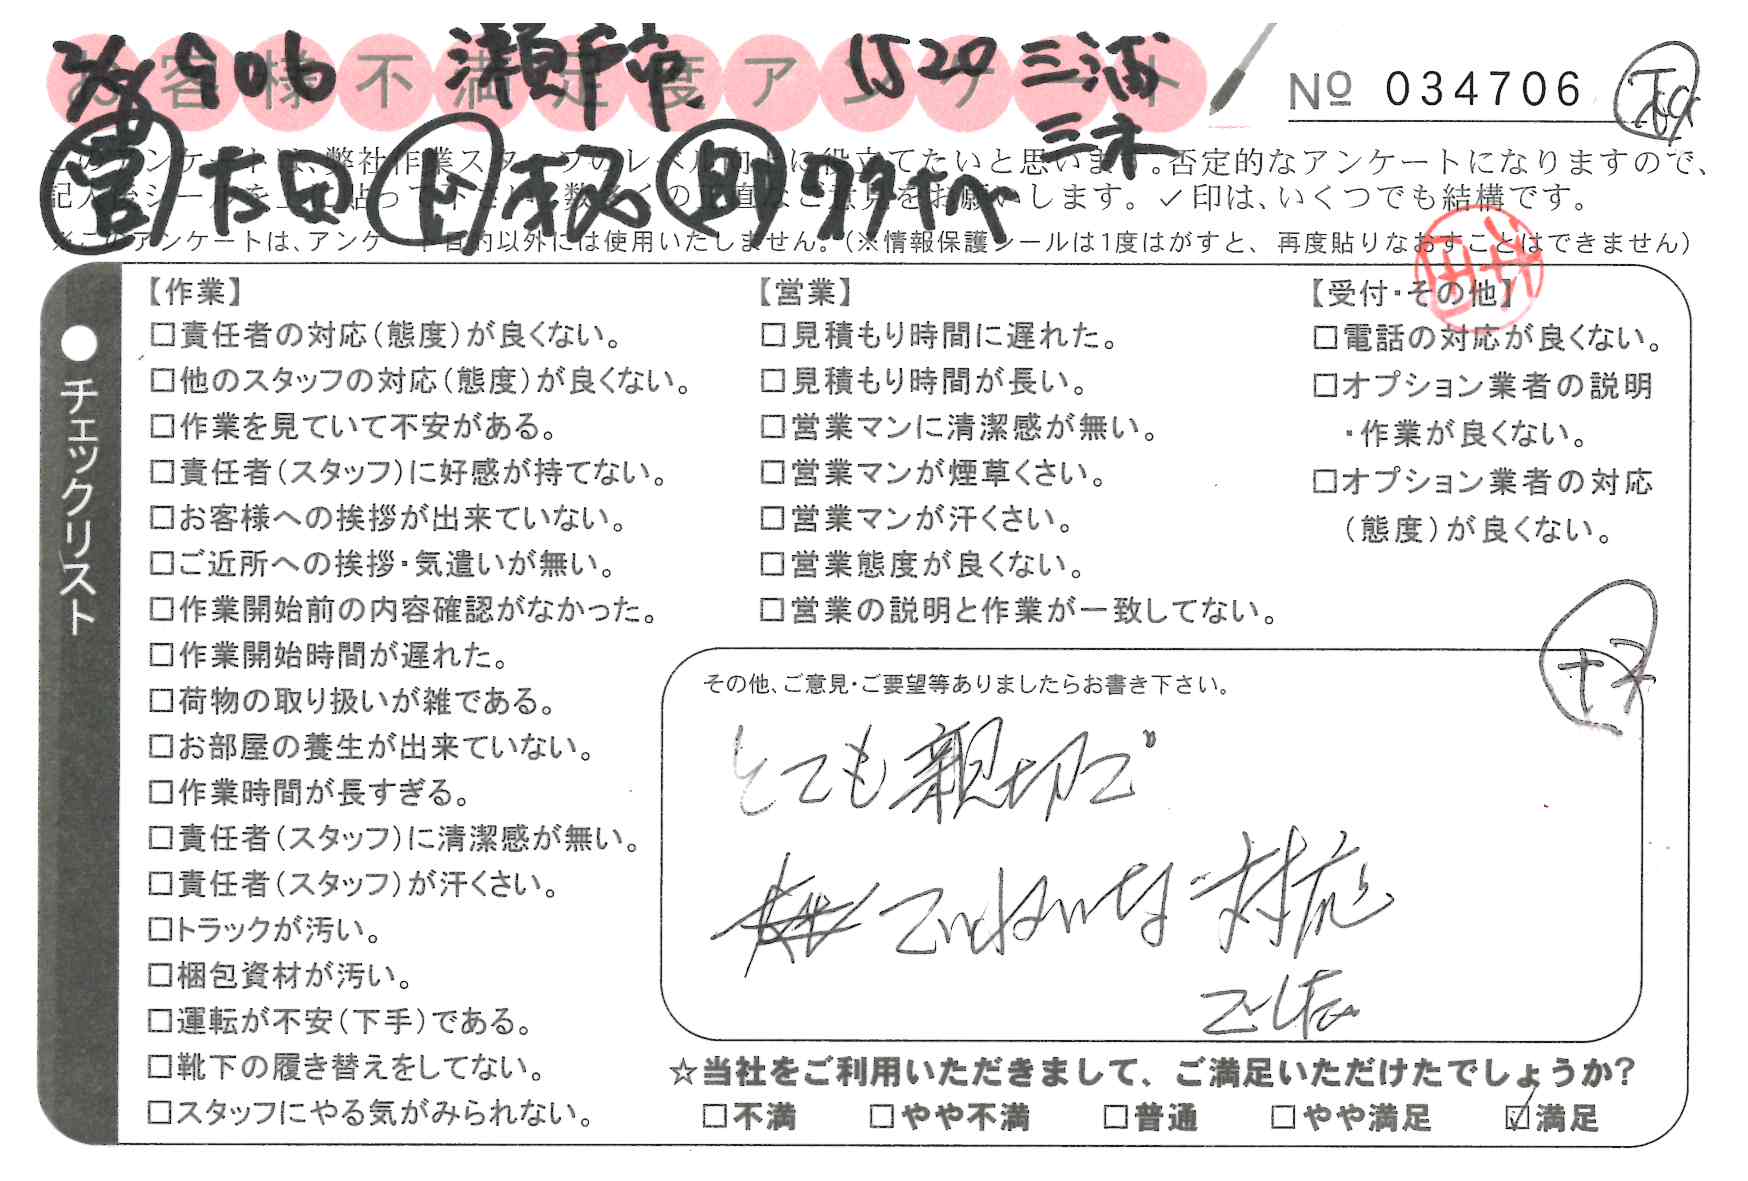 お客様不満足度アンケート
2/8 9006 瀬戸市 1520 三浦
三木
No 034706
営 太田 上 助
このアンケートは、弊社作業スタッフのレベル向上に役立てたいと思います。否定的なアンケートになりますので、
記入後シールを上に貼って下さい。数多くの正直なご意見をお願いします。✓印は、いくつでも結構です。
※このアンケートは、アンケート目的以外には使用いたしません。(※情報保護シールは1度はがすと、再度貼りなおすことはできません)
●チェックリスト
【作業】
□責任者の対応(態度)が良くない。
□他のスタッフの対応(態度)が良くない。
□作業を見ていて不安がある。
□責任者(スタッフ)に好感が持てない。
□お客様への挨拶が出来ていない。
□ご近所への挨拶・気遣いが無い。
□作業開始前の内容確認がなかった。
□作業開始時間が遅れた。
□荷物の取り扱いが雑である。
□お部屋の養生が出来ていない。
□作業時間が長すぎる。
□責任者(スタッフ)に清潔感が無い。
□責任者(スタッフ)が汗くさい。
□トラックが汚い。
□梱包資材が汚い。
□運転が不安(下手)である。
□靴下の履き替えをしてない。
□スタッフにやる気がみられない。
【営業】
□見積もり時間に遅れた。
□見積もり時間が長い。
□営業マンに清潔感が無い。
□営業マンが煙草くさい。
□営業マンが汗くさい。
□営業態度が良くない。
□営業の説明と作業が一致してない。
【受付・その他】
□電話の対応が良くない。
□オプション業者の説明
・作業が良くない。
□オプション業者の対応
(態度)が良くない。
その他、ご意見・ご要望等ありましたらお書き下さい。
とても親切で
ていねいな対応
でした
☆当社をご利用いただきまして、ご満足いただけたでしょうか?
□不満 □やや不満 □普通 □やや満足 ☑満足